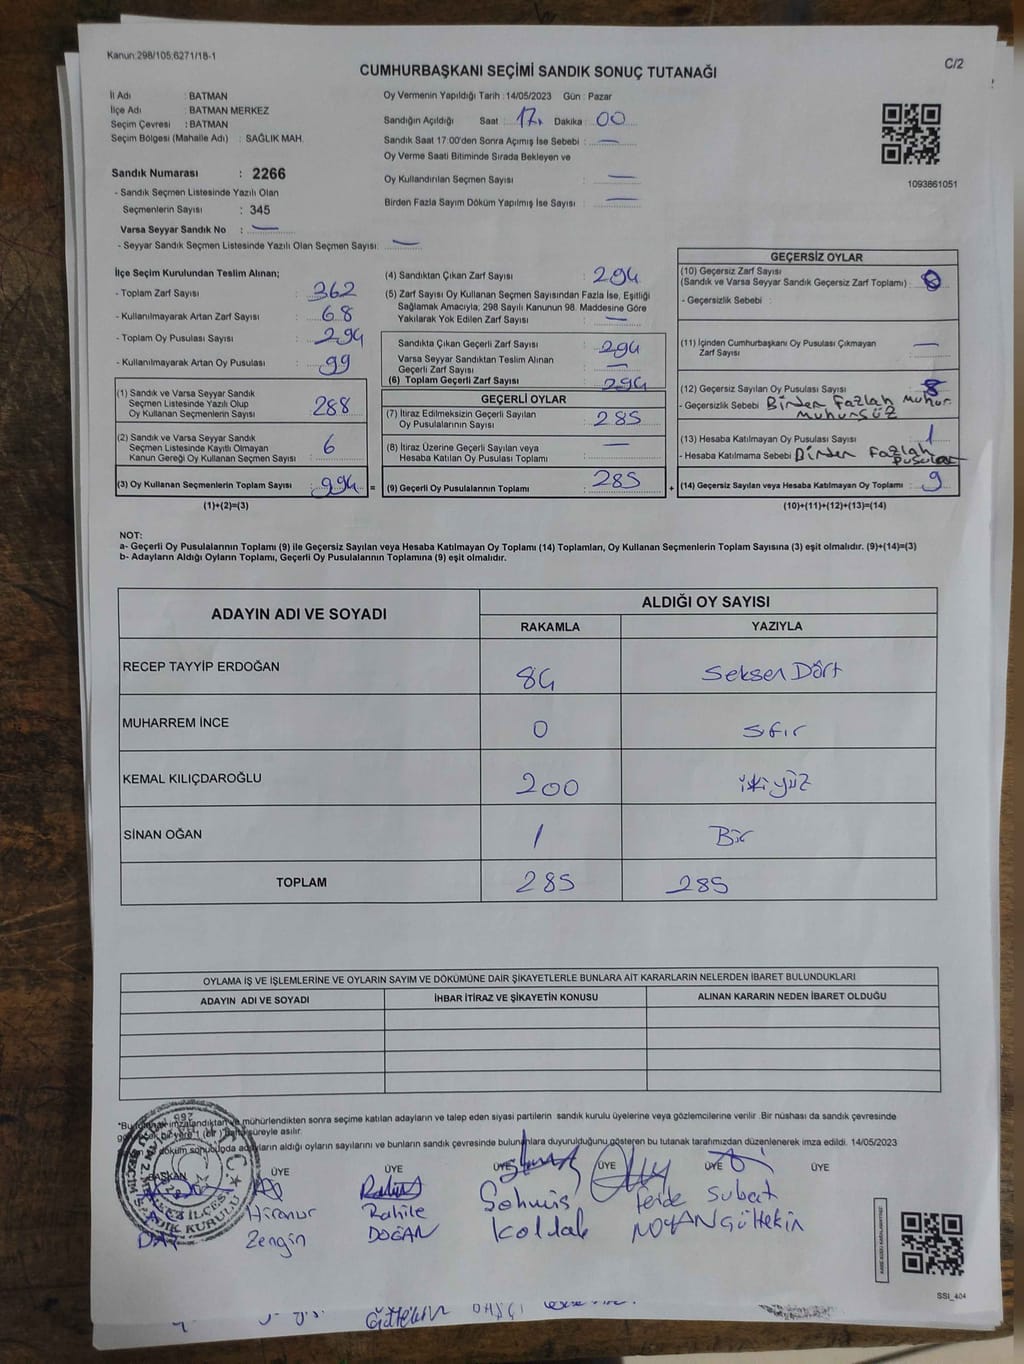 Kanun:298/105;6271/18-1
C/2
CUMHURBAŞKANI SEÇİMİ SANDIK SONUÇ TUTANAĞI
İl Adı : BATMAN
İlçe Adı : BATMAN MERKEZ
Seçim Çevresi : BATMAN
Seçim Bölgesi (Mahalle Adı) : SAĞLIK MAH.
Sandık Numarası : 2266
- Sandık Seçmen Listesinde Yazılı Olan
Seçmenlerin Sayısı : 345
Varsa Seyyar Sandık No : —
- Seyyar Sandık Seçmen Listesinde Yazılı Olan Seçmen Sayısı: —
Oy Vermenin Yapıldığı Tarih : 14/05/2023 Gün : Pazar
Sandığın Açıldığı Saat : 17. Dakika : 00
Sandık Saat 17.00'den Sonra Açımış İse Sebebi : —
Oy Verme Saati Bitiminde Sırada Bekleyen ve
Oy Kullandırılan Seçmen Sayısı : —
Birden Fazla Sayım Döküm Yapılmış İse Sayısı : —
1093861051
İlçe Seçim Kurulundan Teslim Alınan;
- Toplam Zarf Sayısı : 362
- Kullanılmayarak Artan Zarf Sayısı : 68
- Toplam Oy Pusulası Sayısı : 294
- Kullanılmayarak Artan Oy Pusulası : 99
(1) Sandık ve Varsa Seyyar Sandık
Seçmen Listesinde Yazılı Olup
Oy Kullanan Seçmenlerin Sayısı : 288
(2) Sandık ve Varsa Seyyar Sandık
Seçmen Listesinde Kayıtlı Olmayan
Kanun Gereği Oy Kullanan Seçmen Sayısı : 6
(3) Oy Kullanan Seçmenlerin Toplam Sayısı : 994 =
(1)+(2)=(3)
(4) Sandıktan Çıkan Zarf Sayısı : 294
(5) Zarf Sayısı Oy Kullanan Seçmen Sayısından Fazla İse, Eşitliği
Sağlamak Amacıyla; 298 Sayılı Kanunun 98. Maddesine Göre
Yakılarak Yok Edilen Zarf Sayısı : —
Sandıkta Çıkan Geçerli Zarf Sayısı : 294
Varsa Seyyar Sandıktan Teslim Alınan
Geçerli Zarf Sayısı : —
(6) Toplam Geçerli Zarf Sayısı : 294
GEÇERLİ OYLAR
(7) İtiraz Edilmeksizin Geçerli Sayılan
Oy Pusulalarının Sayısı : 285
(8) İtiraz Üzerine Geçerli Sayılan veya
Hesaba Katılan Oy Pusulası Toplamı : —
(9) Geçerli Oy Pusulalarının Toplamı : 285 +
GEÇERSİZ OYLAR
(10) Geçersiz Zarf Sayısı
(Sandık ve Varsa Seyyar Sandık Geçersiz Zarf Toplamı) : 0
- Geçersizlik Sebebi :
(11) İçinden Cumhurbaşkanı Oy Pusulası Çıkmayan
Zarf Sayısı : —
(12) Geçersiz Sayılan Oy Pusulası Sayısı : 8
- Geçersizlik Sebebi Birden Fazlah Muhur.
Muhursüz
(13) Hesaba Katılmayan Oy Pusulası Sayısı : 1
- Hesaba Katılmama Sebebi Birden Fazlah
Pusulat
(14) Geçersiz Sayılan veya Hesaba Katılmayan Oy Toplamı : 9
(10)+(11)+(12)+(13)=(14)
NOT:
a- Geçerli Oy Pusulalarının Toplamı (9) ile Geçersiz Sayılan veya Hesaba Katılmayan Oy Toplamı (14) Toplamları, Oy Kullanan Seçmenlerin Toplam Sayısına (3) eşit olmalıdır. (9)+(14)=(3)
b- Adayların Aldığı Oyların Toplamı, Geçerli Oy Pusulalarının Toplamına (9) eşit olmalıdır.
ADAYIN ADI VE SOYADI
ALDIĞI OY SAYISI
RAKAMLA YAZIYLA
RECEP TAYYİP ERDOĞAN 84 Seksen Dört
MUHARREM İNCE 0 Sıfır
KEMAL KILIÇDAROĞLU 200 iki yüz
SİNAN OĞAN 1 Bir
TOPLAM 285 285
OYLAMA İŞ VE İŞLEMLERİNE VE OYLARIN SAYIM VE DÖKÜMÜNE DAİR ŞİKAYETLERLE BUNLARA AİT KARARLARIN NELERDEN İBARET BULUNDUKLARI
ADAYIN ADI VE SOYADI İHBAR İTİRAZ VE ŞİKAYETİN KONUSU ALINAN KARARIN NEDEN İBARET OLDUĞU
mühürlendikten sonra seçime katılan adayların ve talep eden siyasi partilerin sandık kurulu üyelerine veya gözlemcilerine verilir .Bir nüshası da sandık çevresinde
süreyle asılır.
döküm sonucunda adayların aldığı oyların sayılarını ve bunların sandık çevresinde bulunanlara duyurulduğunu gösteren bu tutanak tarafımızdan düzenlenerek imza edildi. 14/05/2023
BAŞKAN ÜYE ÜYE ÜYE ÜYE ÜYE ÜYE
Rahile Feride Subat
Zengin DOĞAN Koldak NOYAN Gültekin
SSI_404